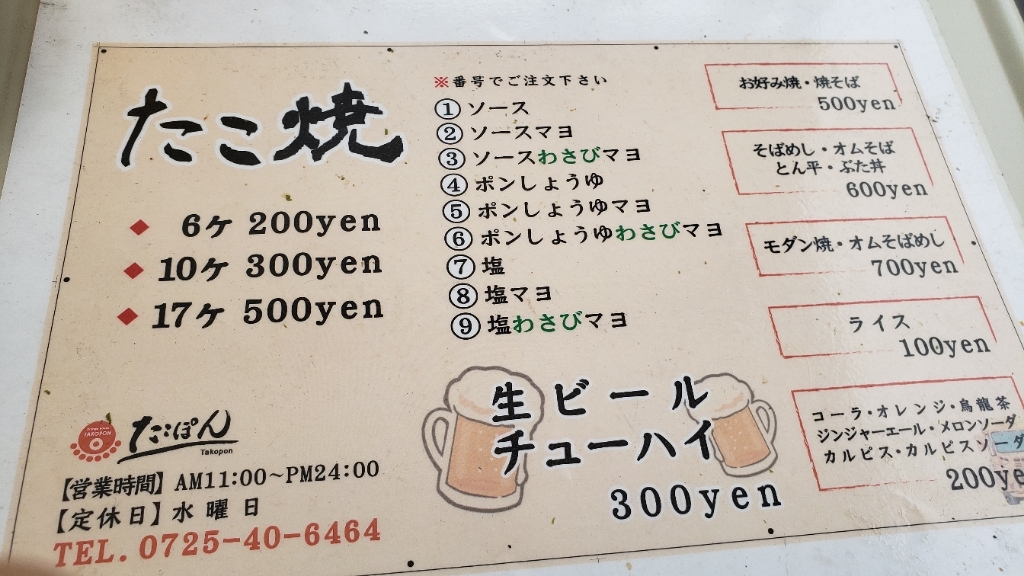 たこ焼
◆ 6ケ 200yen
◆ 10ケ 300yen
◆ 17ケ 500yen
※番号でご注文下さい
① ソース
② ソースマヨ
③ ソースわさびマヨ
④ ポンしょうゆ
⑤ ポンしょうゆマヨ
⑥ ポンしょうゆわさびマヨ
⑦ 塩
⑧ 塩マヨ
⑨ 塩わさびマヨ
お好み焼・焼そば
500yen
そばめし・オムそば
とん平・ぶた丼
600yen
モダン焼・オムそばめし
700yen
ライス
100yen
コーラ・オレンジ・烏龍茶
ジンジャーエール・メロンソーダ
カルピス・カルピスソーダ
200yen
生ビール
チューハイ
300yen
TAKOPON
たこぽん
Takopon
【営業時間】AM11:00~PM24:00
【定休日】水曜日
TEL. 0725-40-6464